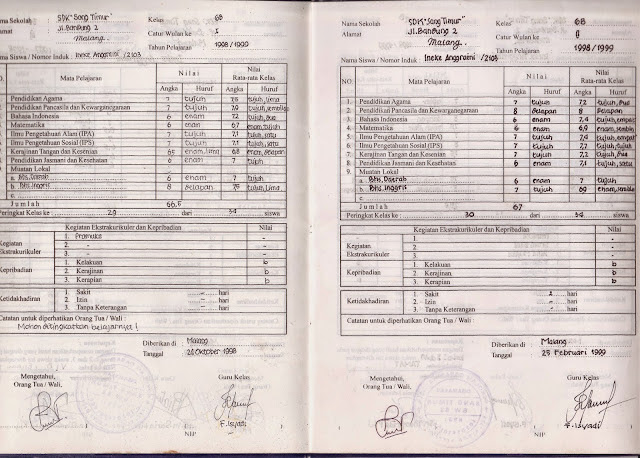 Nama Sekolah : SDK "Sang Timur"
Alamat : Jl. Bandung 2
Malang.
Kelas : 6B
Catur Wulan ke : I
Tahun Pelajaran : 1998/1999
Nama Siswa / Nomor Induk : Ineke Anggraini /2103
NO. Mata Pelajaran Nilai Nilai Rata-rata Kelas
Angka Huruf Angka Huruf
1. Pendidikan Agama 7 tujuh 7,5 tujuh, lima
2. Pendidikan Pancasila dan Kewarganegaraan 7 tujuh 7,9
3. Bahasa Indonesia 6 enam 7,2 tujuh, dua
4. Matematika 6 enam 6,7 enam, tujuh
5. Ilmu Pengetahuan Alam (IPA) 7 tujuh 7,1 tujuh, satu
6. Ilmu Pengetahuan Sosial (IPS) 7 tujuh 7,1 tujuh, satu
7. Kerajinan Tangan dan Kesenian enam, lima 6,8 enam, delapan
8. Pendidikan Jasmani dan Kesehatan 6 enam 7 tujuh
9. Muatan Lokal
a. Bhs. Daerah 6 enam 7 tujuh
b. Bhs. Inggris 8 delapan 7,5 tujuh, lima
c.
Jumlah 66,5
Peringkat Kelas ke : 29 dari 34 siswa
Kegiatan Ekstrakurikuler dan Kepribadian Nilai
Kegiatan Ekstrakurikuler 1. Pramuka -
2. - -
3. - -
Kepribadian 1. Kelakuan b
2. Kerajinan b
3. Kerapian b
Ketidakhadiran 1. Sakit - hari
2. Izin - hari
3. Tanpa Keterangan - hari
Catatan untuk diperhatikan Orang Tua / Wali :
Mohon ditingkatkan belajarnya !
Diberikan di : Malang
Tanggal : Oktober 1998
Mengetahui, Guru Kelas
Orang Tua / Wali,
F. Isyadi
NIP
Nama Sekolah : SDK "Sang Timur"
Alamat : Jl. Bandung 2
Malang..
Kelas : 6B
Catur Wulan ke : II
Tahun Pelajaran : 1998/1999
Nama Siswa / Nomor Induk : Ineke Anggraini /2103
NO. Mata Pelajaran Nilai Nilai Rata-rata Kelas
Angka Huruf Angka Huruf
1. Pendidikan Agama 7 tujuh 7,2 tujuh, dua
2. Pendidikan Pancasila dan Kewarganegaraan 8 delapan 8 delapan
3. Bahasa Indonesia 6 enam 7,4 tujuh, empat
4. Matematika 6 enam 6,9
5. Ilmu Pengetahuan Alam (IPA) 7 tujuh 7,4 tujuh, empat
6. Ilmu Pengetahuan Sosial (IPS) 7 tujuh 7,2 tujuh, dua
7. Kerajinan Tangan dan Kesenian 7 tujuh 7,2 tujuh, dua
8. Pendidikan Jasmani dan Kesehatan 6 enam 7,1 tujuh, satu
9. Muatan Lokal
a. Bhs. Daerah 6 enam 7 tujuh
b. Bhs. Inggris 7 tujuh 6,9
c.
Jumlah 67
Peringkat Kelas ke : 30 dari 34 siswa
Kegiatan Ekstrakurikuler dan Kepribadian Nilai
Kegiatan Ekstrakurikuler 1. -
2. -
3. -
Kepribadian 1. Kelakuan b
2. Kerajinan b
3. Kerapian b
Ketidakhadiran 1. Sakit hari
2. Izin - hari
3. Tanpa Keterangan - hari
Catatan untuk diperhatikan Orang Tua / Wali :
Diberikan di : Malang
Tanggal : 23 Februari 1999
Mengetahui, Guru Kelas
Orang Tua / Wali,
F. Isyadi
NIP